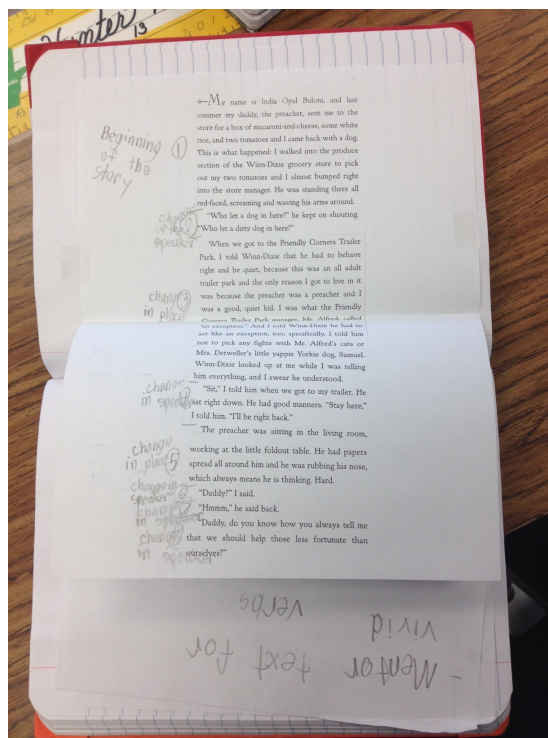 Hunter
13
Beginning
of the
story
1
My name is India Opal Buloni, and last
summer my daddy, the preacher, sent me to the
store for a box of macaroni-and-cheese, some white
rice, and two tomatoes and I came back with a dog.
This is what happened: I walked into the produce
section of the Winn-Dixie grocery store to pick
out my two tomatoes and I almost bumped right
into the store manager. He was standing there all
red-faced, screaming and waving his arms around.
change
of the 2
speaker
"Who let a dog in here?" he kept on shouting.
"Who let a dirty dog in here?"
When we got to the Friendly Corners Trailer
Park, I told Winn-Dixie that he had to behave
right and be quiet, because this was an all adult
trailer park and the only reason I got to live in it
was because the preacher was a preacher and I
was a good, quiet kid. I was what the Friendly
Corners Trailer Park manager, Mr. Alfred, called
change 3
in place
"an exception." And I told Winn-Dixie he had to
act like an exception, too; specifically, I told him
not to pick any fights with Mr. Alfred's cats or
Mrs. Detweller's little yappie Yorkie dog, Samuel.
Winn-Dixie looked up at me while I was telling
him everything, and I swear he understood.
change
in speaker
"Sit," I told him when we got to my trailer. He
sat right down. He had good manners. "Stay here,"
I told him. "I'll be right back."
The preacher was sitting in the living room,
change
in place 5
working at the little foldout table. He had papers
spread all around him and he was rubbing his nose,
which always means he is thinking. Hard.
change in
speaker
"Daddy?" I said.
change
in speaker
"Hmmm," he said back.
change
in speaker
"Daddy, do you know how you always tell me
that we should help those less fortunate than
ourselves?"
- Mentor text for
vivid
verbs